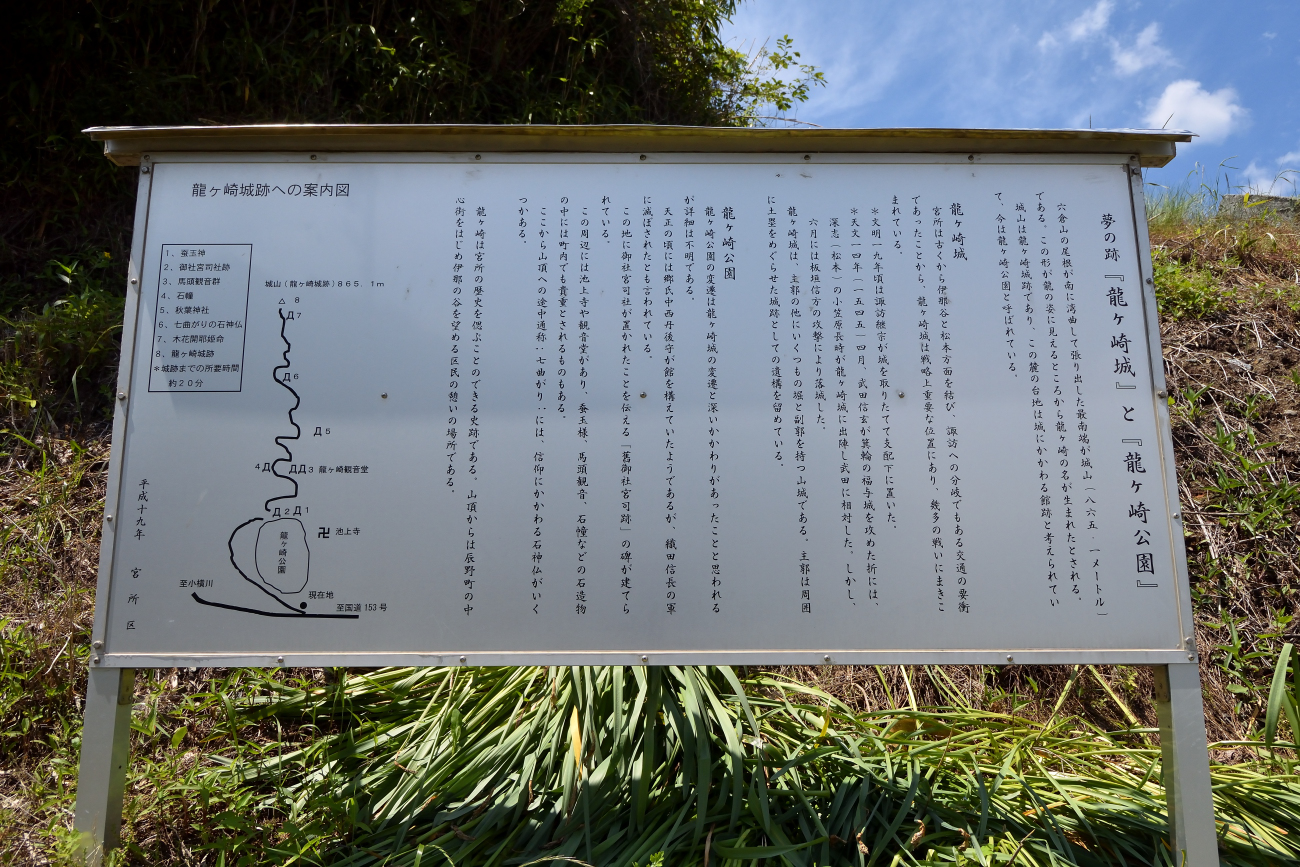 夢の跡『龍ヶ崎城』と『龍ヶ崎公園』
六倉山の尾根が南に湾曲して張り出した最南端が城山(八六五・一メートル)
である。この形が龍の姿に見えるところから龍ヶ崎の名が生まれたとされる。
城山は龍ヶ崎城跡であり、この麓の台地は城にかかわる館跡と考えられてい
て、今は龍ヶ崎公園と呼ばれている。
龍ヶ崎城
宮所は古くから伊那谷と松本方面を結び、諏訪への分岐でもある交通の要衝
であったことから、龍ヶ崎城は戦略上重要な位置にあり、幾多の戦いにまきこ
まれている。
＊文明一九年頃は諏訪継宗が城を取りたてて支配下に置いた。
＊天文一四年(一五四五)四月、武田信玄が箕輪の福与城を攻めた折には、
深志(松本)の小笠原長時が龍ヶ崎城に出陣し武田に相対した。しかし、
六月には板垣信方の攻撃により落城した。
龍ヶ崎城は、主郭の他にいくつもの堀と副郭を持つ山城である。主郭は周囲
に土塁をめぐらせた城跡としての遺構を留めている。
龍ヶ崎公園
龍ヶ崎公園の変遷は龍ヶ崎城の変遷と深いかかわりがあったことと思われる
が詳細は不明である。
天正の頃には郷氏中西丹後守が館を構えていたようであるが、織田信長の軍
に滅ぼされたとも言われている。
この地に御社宮司社が置かれたことを伝える「舊御社宮司跡」の碑が建てら
れている。
この周辺には池上寺や観音堂があり、蚕玉様、馬頭観音、石幢などの石造物
の中には町内でも貴重とされるものもある。
ここから山頂への途中通称‥七曲がり‥には、信仰にかかわる石神仏がいく
つかある。
龍ヶ崎は宮所の歴史を偲ぶことのできる史跡である。山頂からは辰野町の中
心街をはじめ伊那の谷を望める区民の憩いの場所である。
平成十九年 宮所区
龍ヶ崎城跡への案内図
1、蚕玉神
2、御社宮司社跡
3、馬頭観音群
4、石幢
5、秋葉神社
6、七曲がりの石神仏
7、木花開耶姫命
8、龍ヶ崎城跡
＊城跡までの所要時間
約20分
城山(龍ヶ崎城跡)865.1m
8
7
6
5
4
3 龍ヶ崎観音堂
2
1
卍 池上寺
龍ヶ崎公園
至小横川
現在地
至国道153号